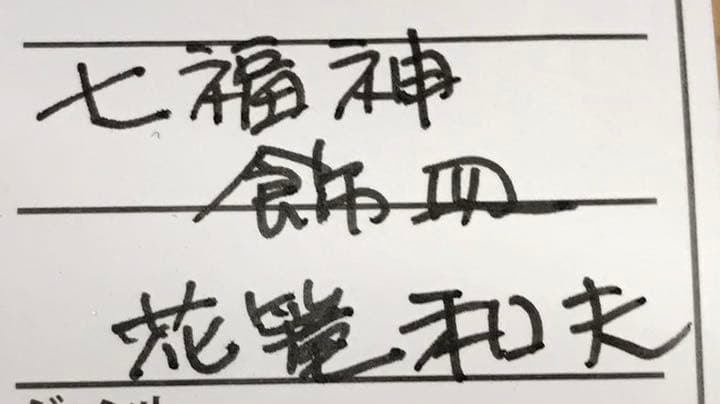 七福神
飾皿
花篭和夫